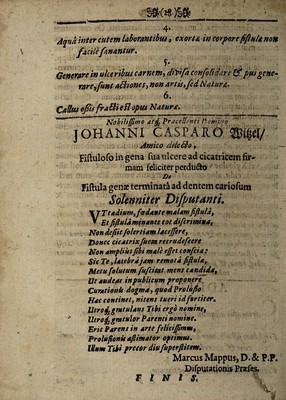 (28)
4.
Aquâ inter cutem laborantibus, exortæ in corpore fistulæ non
facilè sanantur.
5.
Generare in ulceribus carnem, divisa consolidare & pus gene-
rare, sunt actiones, non artis, sed Naturæ.
6.
Callus ossis fracti est opus Naturæ.
Nobilissimo atq; Præcellenti Domino
JOHANNI CASPARO Witzel/
Amico dilecto,
Fistuloso in gena sua ulcere ad cicatricem fir-
mam feliciter perducto
De
Fistula genæ terminatâ ad dentem cariosum
Solenniter Disputanti.
VT tædium, sudante malam fistulâ,
Et fistulâ minante eot discrimina,
Non desiit solertiam lacessere,
Donec cicatrix suem recrudescere
Non ampliùs sibi malè esset conscia:
Sic Te, latebrâ jam remotâ fistulæ,
Metu solutum suscitat mens candida,
Ut audeas in publicum proponere
Curationis dogma, quod Prolusio
Hac continet, nitens tueri id fortiter.
Utroq; gratulans Tibi ergò nomine,
Utroq; gratulor Parenti nomine.
Eric Parens in arte felicissimus,
Prolusionis æstimator optimus.
Illum Tibi precor diu superstitem.
Marcus Mappus, D. & P.P.
Disputationis Præses.
FINIS.